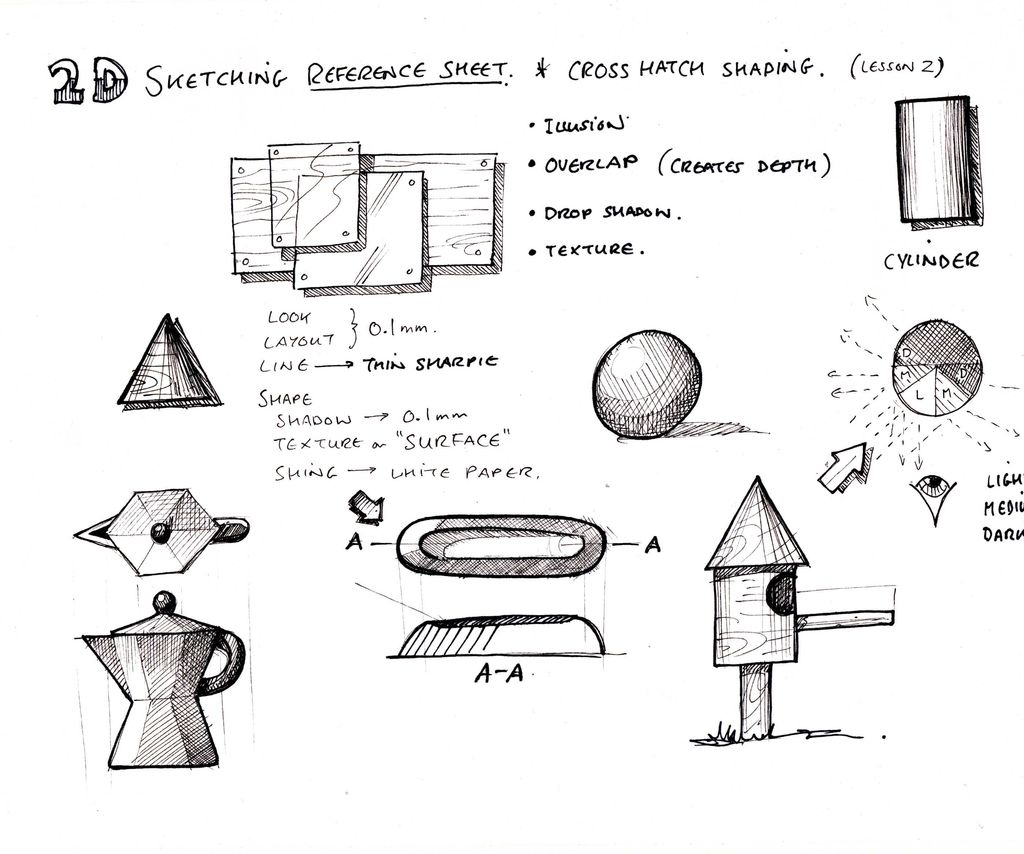 2D SKETCHING REFERENCE SHEET. * CROSS HATCH SHADING. (LESSON 2)
• ILLUSION
• OVERLAP (CREATES DEPTH)
• DROP SHADOW.
• TEXTURE.
CYLINDER
LOOK
LAYOUT } 0.1mm.
LINE → THIN SHARPIE
SHAPE
SHADOW → 0.1mm
TEXTURE or "SURFACE"
SHING → WHITE PAPER.
D
M D
L M
LIGH
MEDIU
DARK
A A
A-A